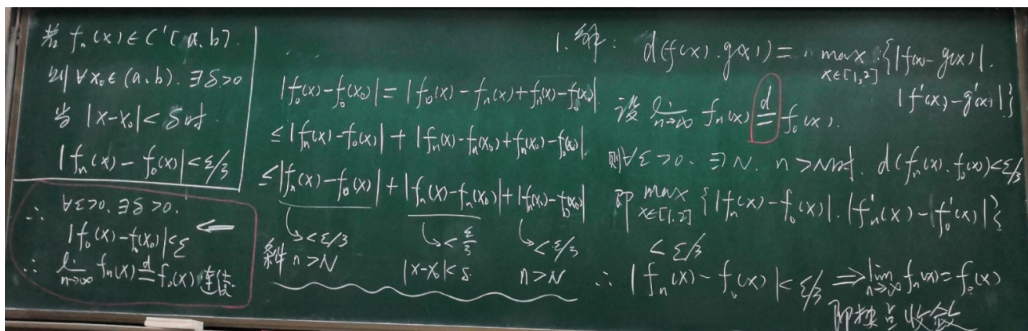 若 fₙ(x) ∈ C'[a,b].
则 ∀x₀∈(a,b). ∃δ>0
当 |x-x₀|<δ时.
|fₙ(x) - f₀(x)| < ε/3
∴ ∀ε>0. ∃δ>0.
|f₀(x)-f₀(x₀)|<ε ⇐
∴ lim n→∞ fₙ(x) d= f₀(x) 连续
|f₀(x)-f₀(x₀)| = |f₀(x) - fₙ(x) + fₙ(x) - f₀(x₀)|
≤ |fₙ(x)-f₀(x)| + |fₙ(x)-fₙ(x₀)+fₙ(x₀)-f₀(x₀)|
≤ |fₙ(x)-f₀(x)| + |fₙ(x)-fₙ(x₀)| + |fₙ(x₀)-f₀(x₀)|
↳ <ε/3 ↳ <ε/3 ↳ <ε/3
条件 n>N |x-x₀|<δ n>N
1. 解: d(f(x).g(x)) = max x∈[1,2] {|f(x)-g(x)|.
|f'(x)-g'(x)|}
设 lim n→∞ fₙ(x) d= f₀(x).
则∀ε>0. ∃N. n>N时. d(fₙ(x).f₀(x))<ε/3
即 max x∈[1,2] {|fₙ(x)-f₀(x)|.|fₙ'(x)-f₀'(x)|}
< ε/3
∴ |fₙ(x)-f₀(x)|<ε/3 ⇒ lim n→∞ fₙ(x)=f₀(x)
即按点收敛